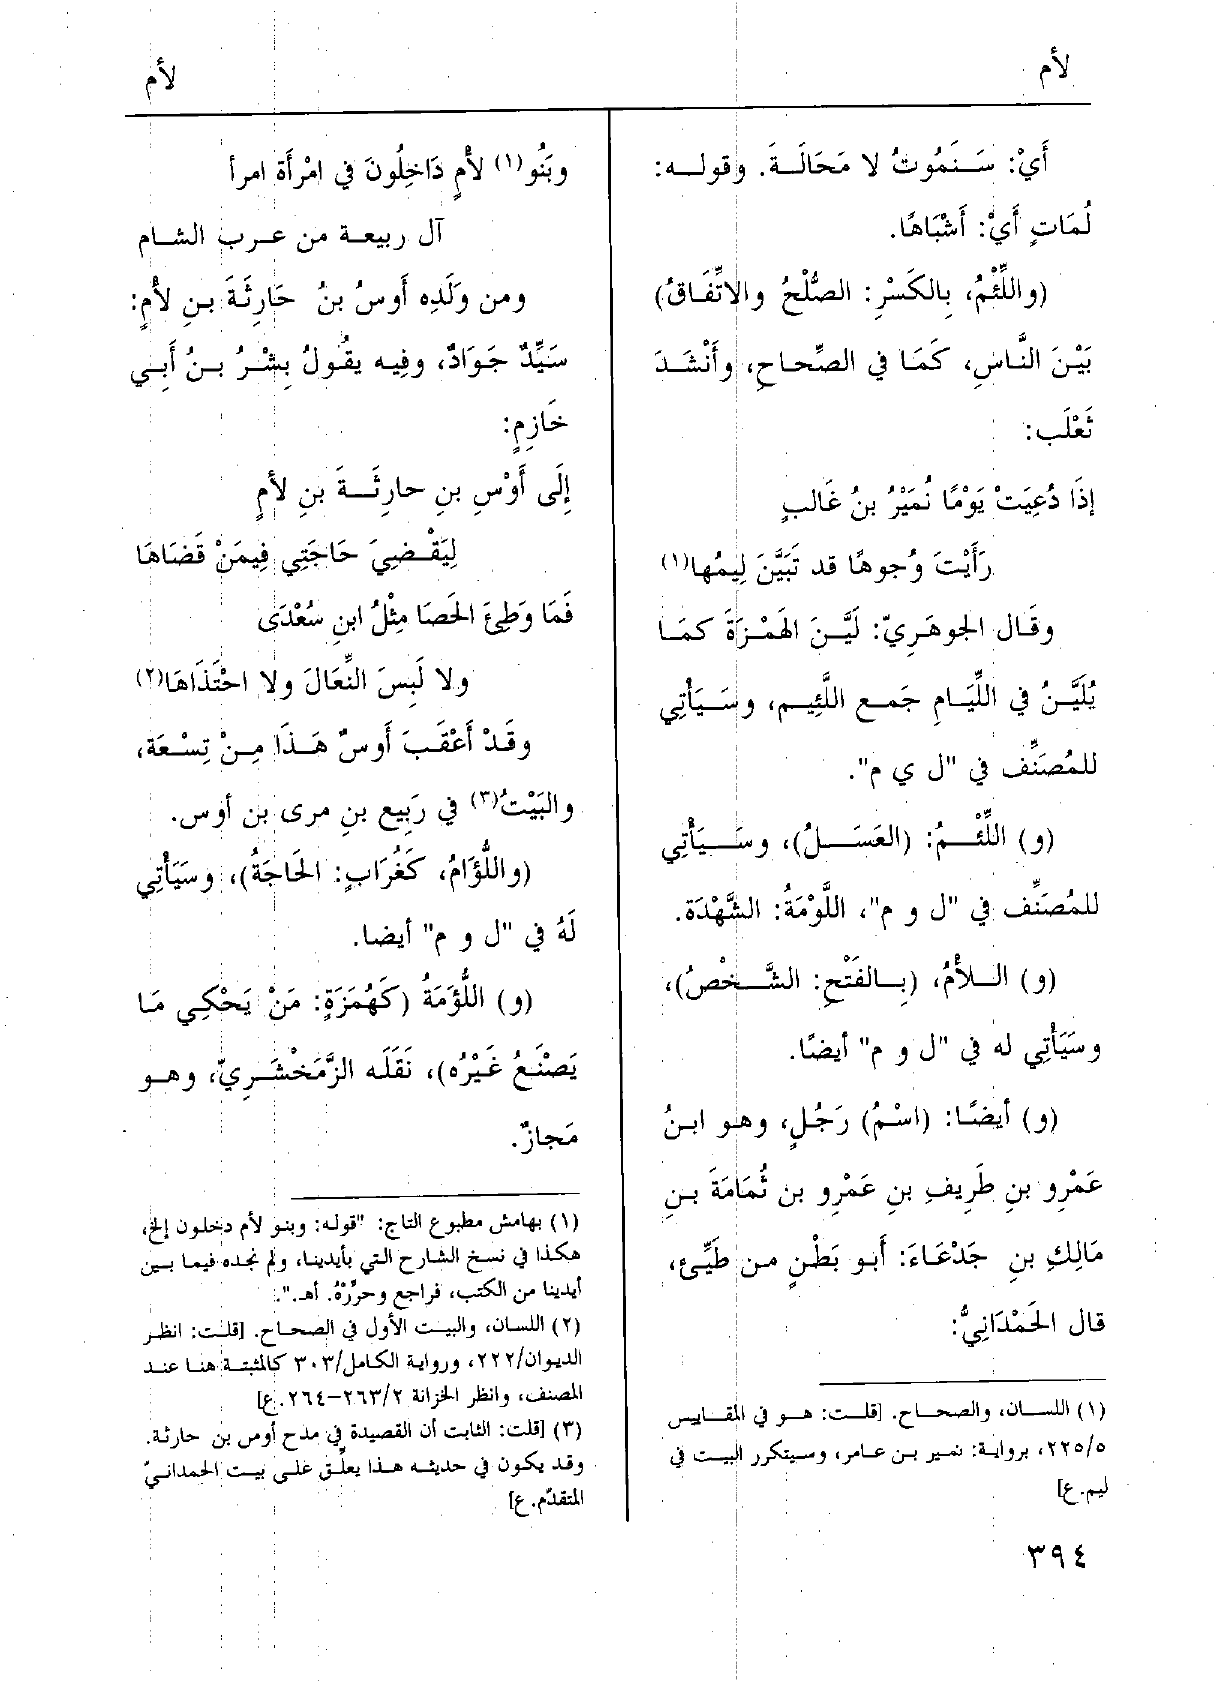 لأم
لأم
أَيْ: سَـنَمُوتُ لا مَحَالَـةَ. وقولـه:
لُمَاتٍ أَيْ: أَشْبَاهًا.
(واللِّئْمُ، بِالكَسْرِ: الصُّلْحُ والاتِّفَـاقُ)
بَيْنَ النَّاسِ، كَمَـا في الصِّحـاحِ، وأَنْشَـدَ
ثَعْلَب:
إذَا دُعِيَتْ يَوْمًا نُمَيْرُ بنُ غَالبٍ
رَأَيْتَ وُجوهًا قد تَبَيَّنَ لِيمُها(١)
وقَـال الجوهَرِيّ: لَيَّـنَ الهَمْـزَةَ كمَـا
يُلَيَّـنُ في اللِّيَـامِ جَمـع اللَّئِيـم، وسَـيَأْتِي
للمُصَنِّف في "ل ي م".
(و) اللِّئْـمُ: (العَسَـلُ)، وسَـيَأْتِي
للمُصَنِّف في "ل و م"، اللَّوْمَةُ: الشَّهْدَة.
(و) الـلأْمُ، (بِـالفَتْحِ: الشَّـخْصُ)،
وسَيَأْتِي له في "ل و م" أيضًا.
(و) أيضًـا: (اسْمُ) رَجُلٍ، وهـو ابنُ
عَمْرِو بنِ طَرِيفِ بنِ عَمْرِو بن ثُمَامَةَ بـنِ
مَالِكِ بنِ جَدْعَاءَ: أَبو بَطْنٍ مـن طَيِّئ،
قال الحَمْدَانِيُّ:
(١) اللسـان، والصحـاح. [قلـت: هـو في المقـاييس
٢٢٥/٥، برواية: نمير بـن عـامر، وسـيتكرر البيـت في
ليم. ع]
٣٩٤
وبَنُو(١) لأْمٍ دَاخِلُونَ في امْرأَة امرأ
آل ربيعـة من عـرب الشـام
ومن وَلَدِه أَوسُ بنُ حَارِثَةَ بـنِ لأْمٍ:
سَيِّدٌ جَوَادٌ، وفِيه يقُولُ بِشْـرُ بـنُ أَبـي
خَازِمٍ:
إلَى أَوْسِ بنِ حارِثَـةَ بنِ لأمٍ
لِيَقْـضِيَ حَاجَتِي فِيمَنْ قَضَاهَا
فَمَا وَطِئَ الحَصَا مِثْلُ ابنِ سُعْدَى
ولا لَبِسَ النِّعَالَ ولا احْتَذَاهَا(٢)
وقَـدْ أَعْقَـبَ أَوسٌ هَـذَا مِـنْ تِسْـعَة،
والبَيْتُ(٣) في رَبِيع بنِ مرى بن أوس.
(واللُّؤَامُ، كَغُرَابٍ: الحَاجَةُ)، وسَيَأْتِي
لَهُ في "ل و م" أيضا.
(و) اللُّؤَمَةُ (كَهُمَزَةٍ: مَنْ يَحْكِي مَـا
يَصْنَـعُ غَيْرُه)، نَقَلَه الزَّمَخْشَـرِيّ، وهـو
مَجازٌ.
(١) بهامش مطبوع التاج: "قوله: وبنو لأم دخلون إلخ،
هكذا في نسخ الشارح التي بأيدينا، ولم نجده فيما بـين
أيدينا من الكتب، فراجع وحرِّرْهُ. أهـ.".
(٢) اللسان، والبيت الأول في الصحـاح. [قلـت: انظـر
الديوان/٢٢٢، ورواية الكامل/٣٠٣ كالمثبتـة هنـا عنـد
المصنف، وانظر الخزانة ٢٦٣/٢–٢٦٤. ع]
(٣) [قلت: الثابت أن القصيدة في مدح أوس بن حارثة.
وقد يكون في حديثـه هـذا يعلّق علـى بيـت الحمدانـيّ
المتقدّم. ع]